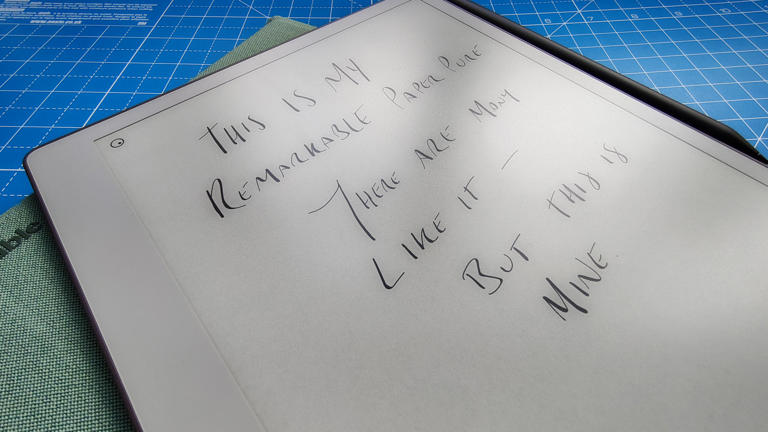 THIS IS MY
REMARKABLE PAPER PURE
THERE ARE MANY
LIKE IT —
BUT THIS IS
MINE.
able